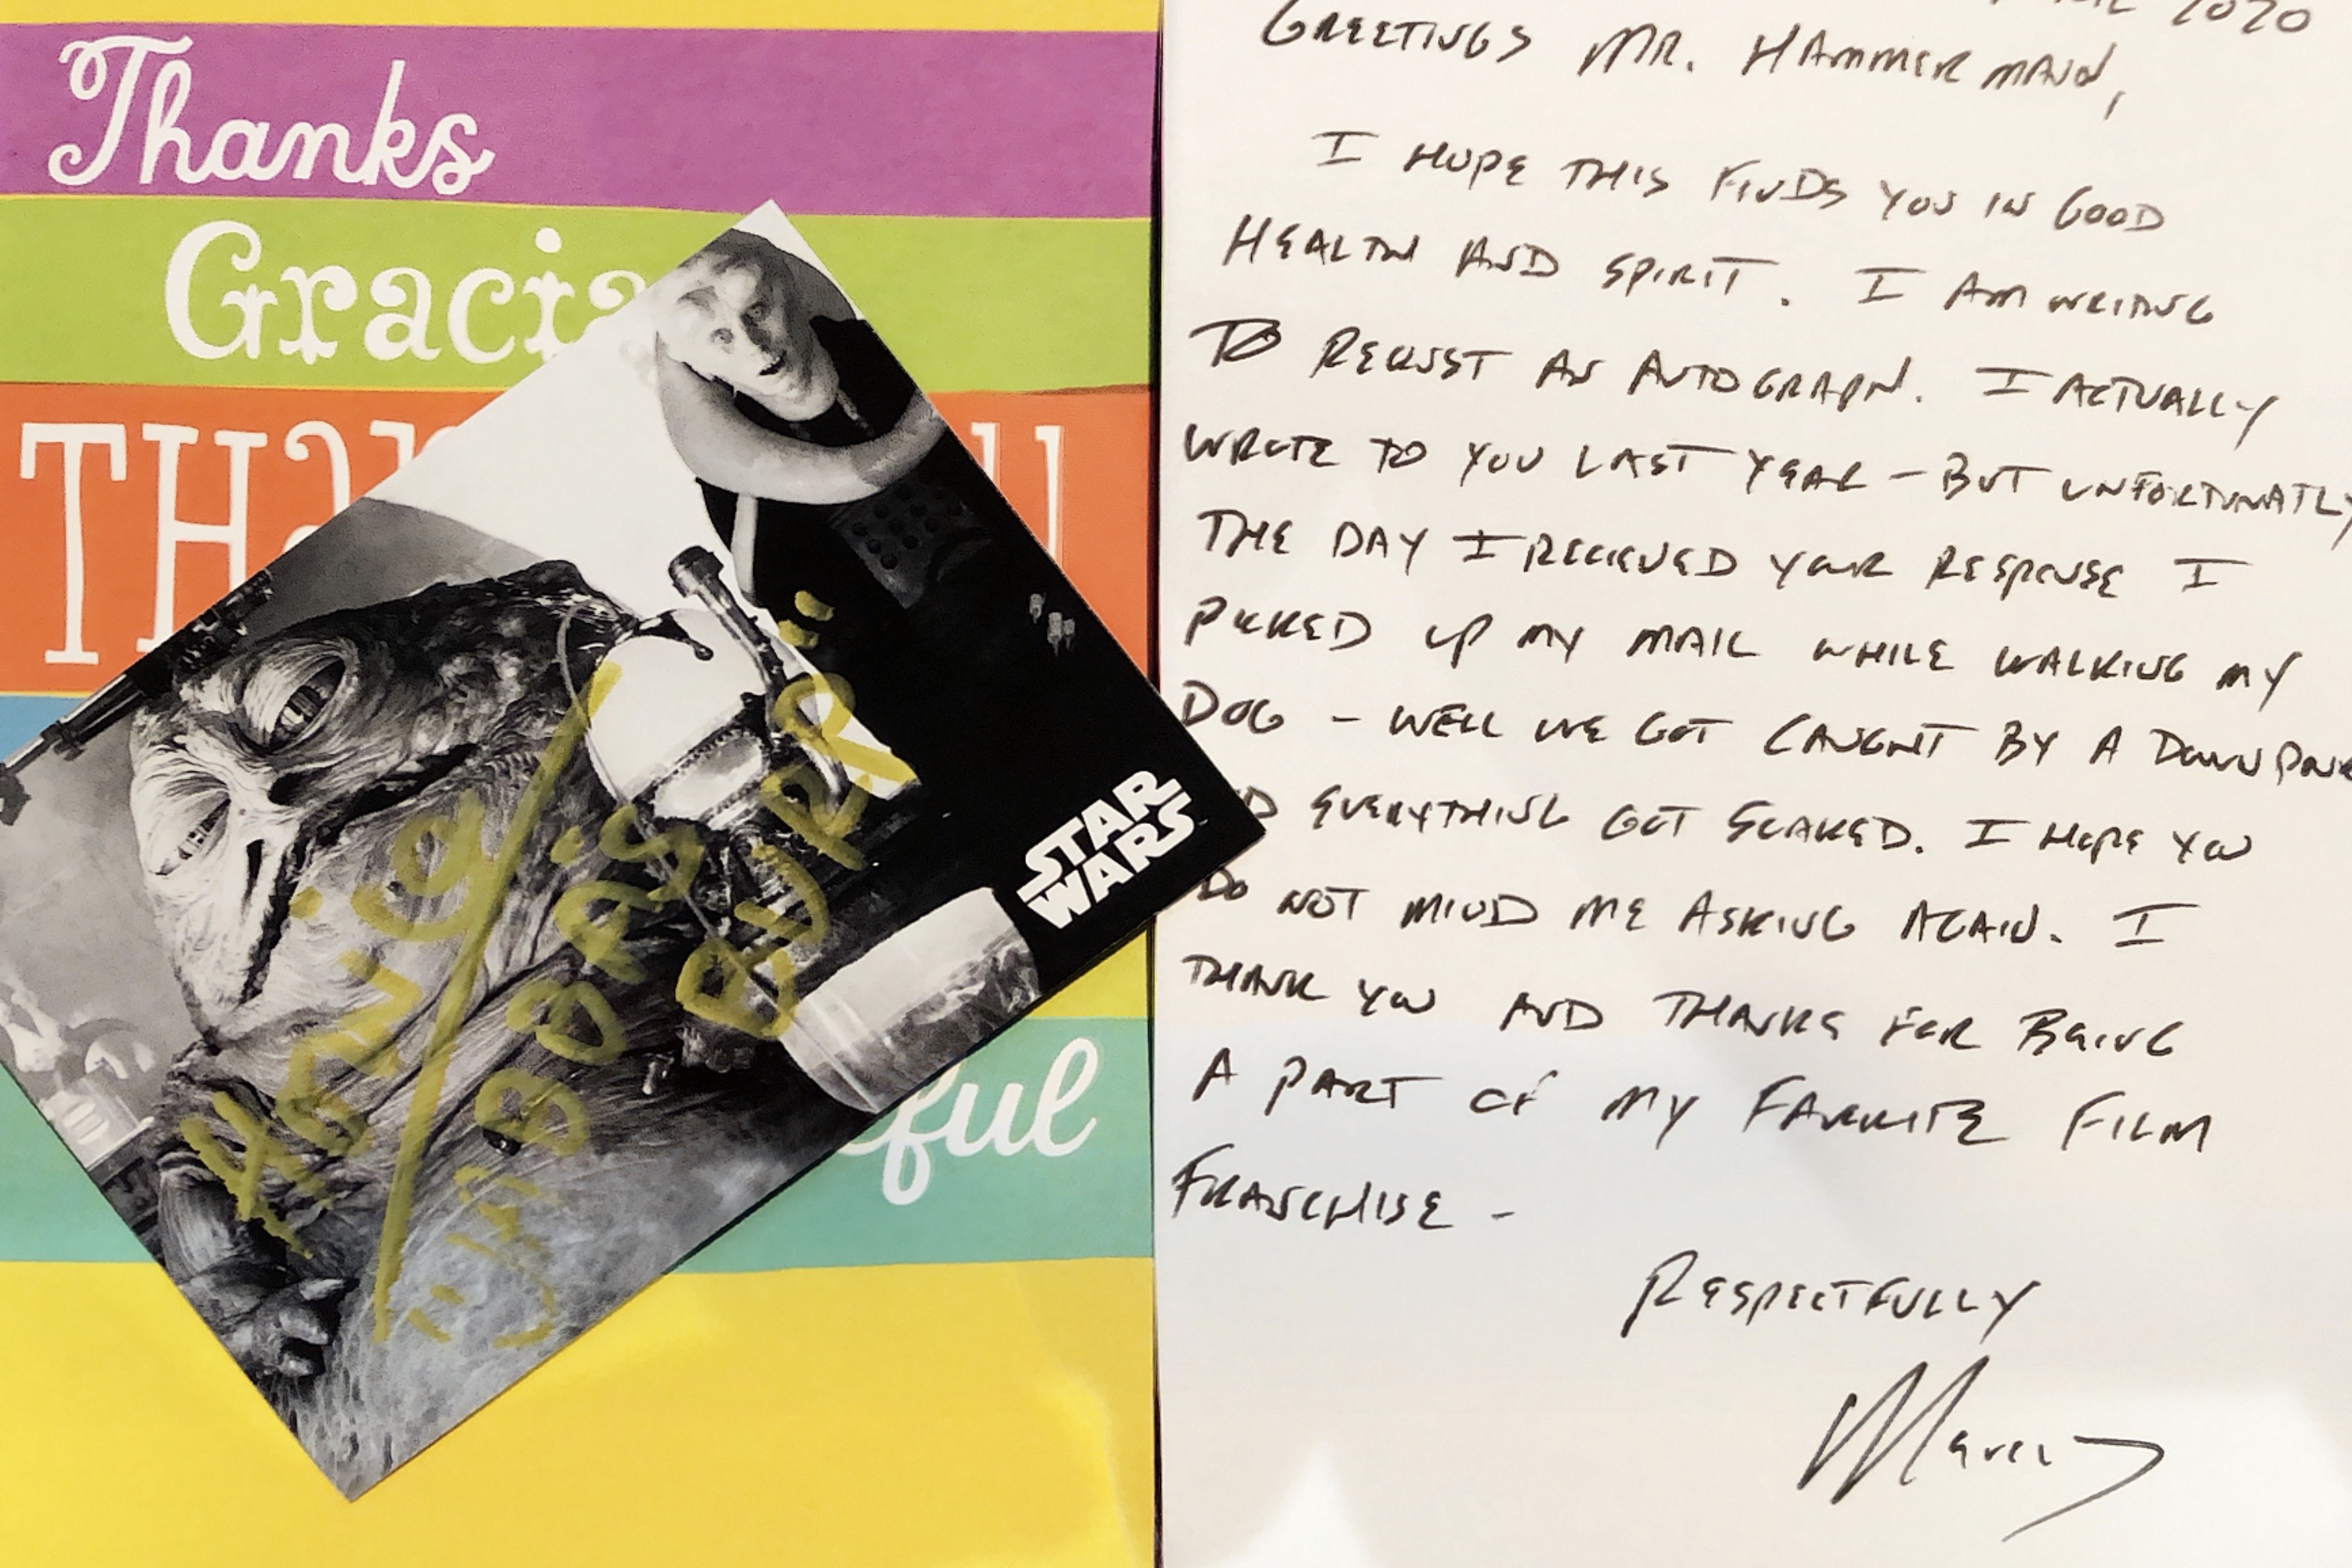 Thanks
Gracia
THa
ful
STAR
WARS
HOWIE
"JABBA'S
BURP"
2020
GREETINGS MR. HAMMERMANN,
I HOPE THIS FINDS YOU IN GOOD
HEALTH AND SPIRIT. I AM WRITING
TO REQUST AN AUTOGRAPH. I ACTUALLY
WROTE TO YOU LAST YEAR - BUT UNFORTUNATLY
THE DAY I RECIEVED YOUR RESPONSE I
PICKED UP MY MAIL WHILE WALKING MY
DOG - WELL WE GOT CAUGHT BY A DOWNPOU
D EVERYTHING GOT SOAKED. I HOPE YOU
DO NOT MIND ME ASKING AGAIN. I
THANK YOU AND THANKS FOR BEING
A PART OF MY FAVORITE FILM
FRANCHISE -
RESPECTFULLY